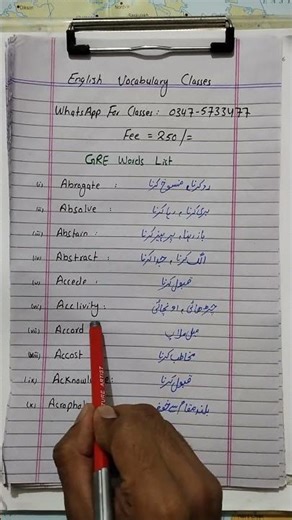 English Vocabulary Classes
WhatsApp For Classes: 0347-5733477
Fee = 250/=
CORE Words List
(i) Abrogate : رد کرنا، منسوخ کرنا
(ii) Absolve : بری کرنا، رہا کرنا
(iii) Abstain : باز رہنا، پرہیز کرنا
(iv) Abstract : الگ کرنا، جدا کرنا
(v) Accede : قبول کرنا
(vi) Acclivity : چڑھائی، اونچائی
(vii) Accord میل ملاپ
(viii) Accost مخاطب کرنا
(ix) Acknowl : قبول کرنا
(x) Acropho بلند مقام سے خوف
TURE ARTIST